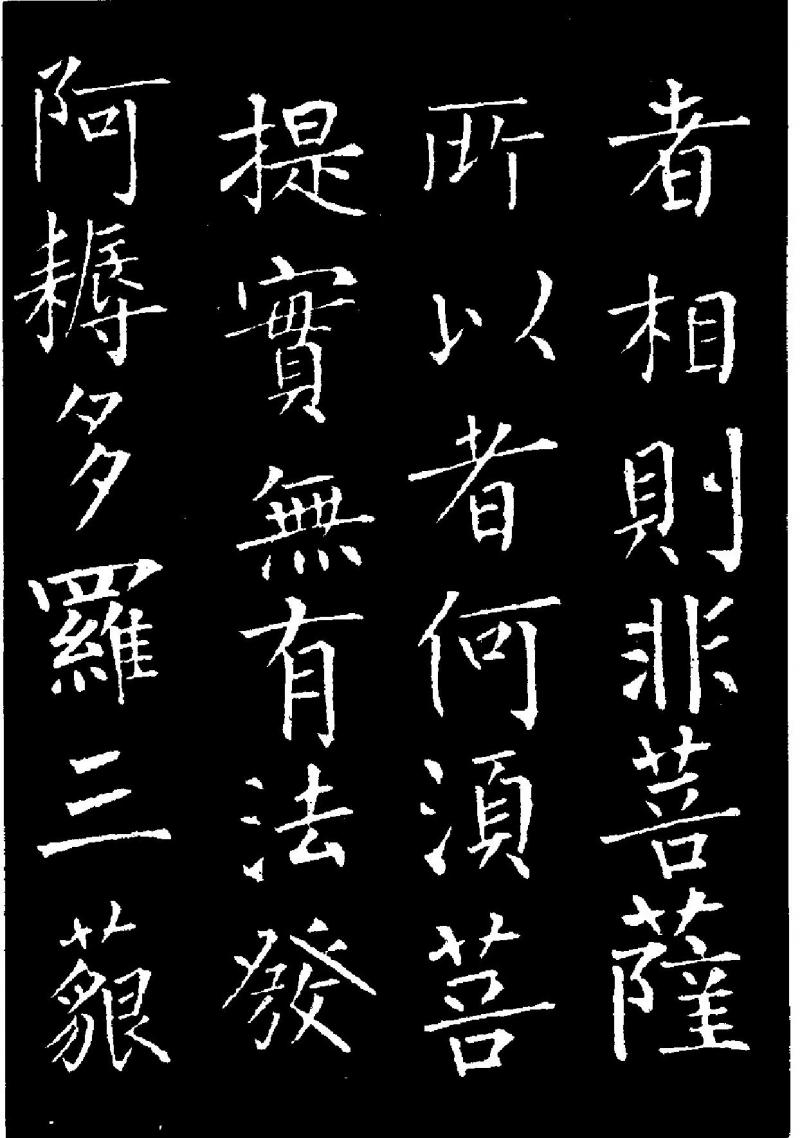 者相則非菩薩
所以者何須菩
提實無有法發
阿耨多羅三藐